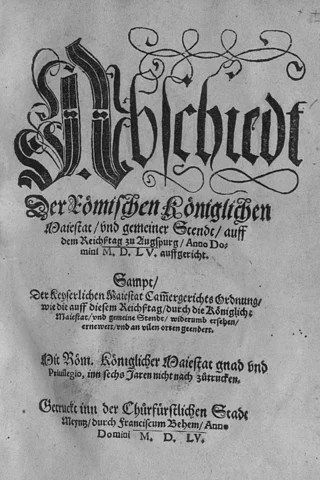 Abschiedt
Der Römischen Königlichen
Maiestat / vnd gemeiner Stende / auff
dem Reichßtag zu Augspurg / Anno Do-
mini M. D. LV. auffgericht.
Sampt /
Der Keyserlichen Maiestat Cam̃ergerichts Ordnung /
wie die auff diesem Reichßtag / durch die Königliche
Maiestat / vnd gemeine Stende / widerumb ersehen /
ernewert / vnd an vilen orten geendert.
Mit Röm. Königlicher Maiestat gnad vnd
Priuilegio, inn sechs Jaren nicht nach zůtrucken.
Getruckt inn der Chürfürstlichen Stadt
Meyntz / durch Franciscum Behem / Anno
Domini M. D. LV.